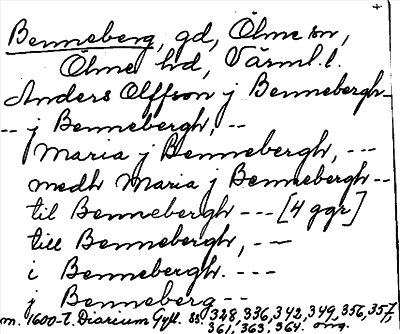 Benneberg, gd, Ölme sn,
Ölme hd, Värml. l.
Anders Olffson j Bennebergh -
-- j Bennebergh, --
Maria j Bennebergh, ---
medh Maria j Bennebergh --
til Bennebergh --- [4 ggr]
till Bennebergh, ---
i Bennebergh. ---
j Benneberg --
m. 1600-t. Diarium Gyll. ss. 328, 336, 342, 349, 356, 357,
361, 363, 364.